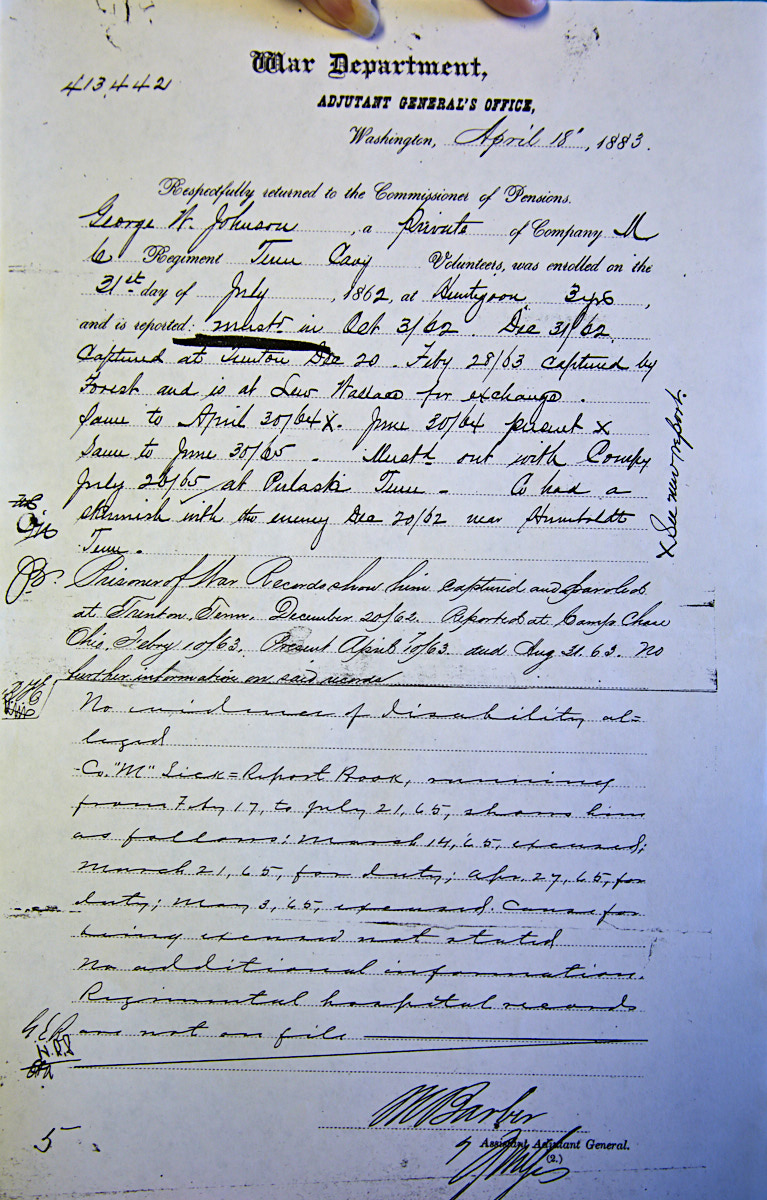 War Department,
413,442
ADJUTANT GENERAL'S OFFICE,
Washington, April 18", 1883.
Respectfully returned to the Commissioner of Pensions.
George W. Johnson, a Private of Company M
6 Regiment Tenn Cavy Volunteers, was enrolled on the
31st day of July, 1862, at 3 yrs,
and is reported: Must in Oct 31/62. Dec 31/62
Captured at Trenton Dec 20. Feby 28/63 captured by
Forest and is at Lew Wallace for exchange.
Same to April 30/64 X. June 30/64 present X
Same to June 30/65. Mustd out with Compy
July 26/65 at Pulaski Tenn. Co had a
skirmish with the enemy Dec 20/62 near Humboldt
Tenn.
X See new report.
Prisoner of War Records show him captured and paroled
at Trenton, Tenn. December 20/62. Reported at Camp Chase
Ohio, Febry 10/63. Present April 10/63. Aug 21. 63. No
further information on said records
No evidence of disability al=
leged
Co. "M" Sick=Report Book, running
from Feby 17, to July 21, 65, shows him
as follows: March 14, '65, excused;
March 21, 65, for duty; Apr. 27, 65, for
duty; May 3, '65, excused. Cause for
being excused not stated
No additional information.
Regimental hospital records
are not on file
5
Assistant Adjutant General.
(2.)